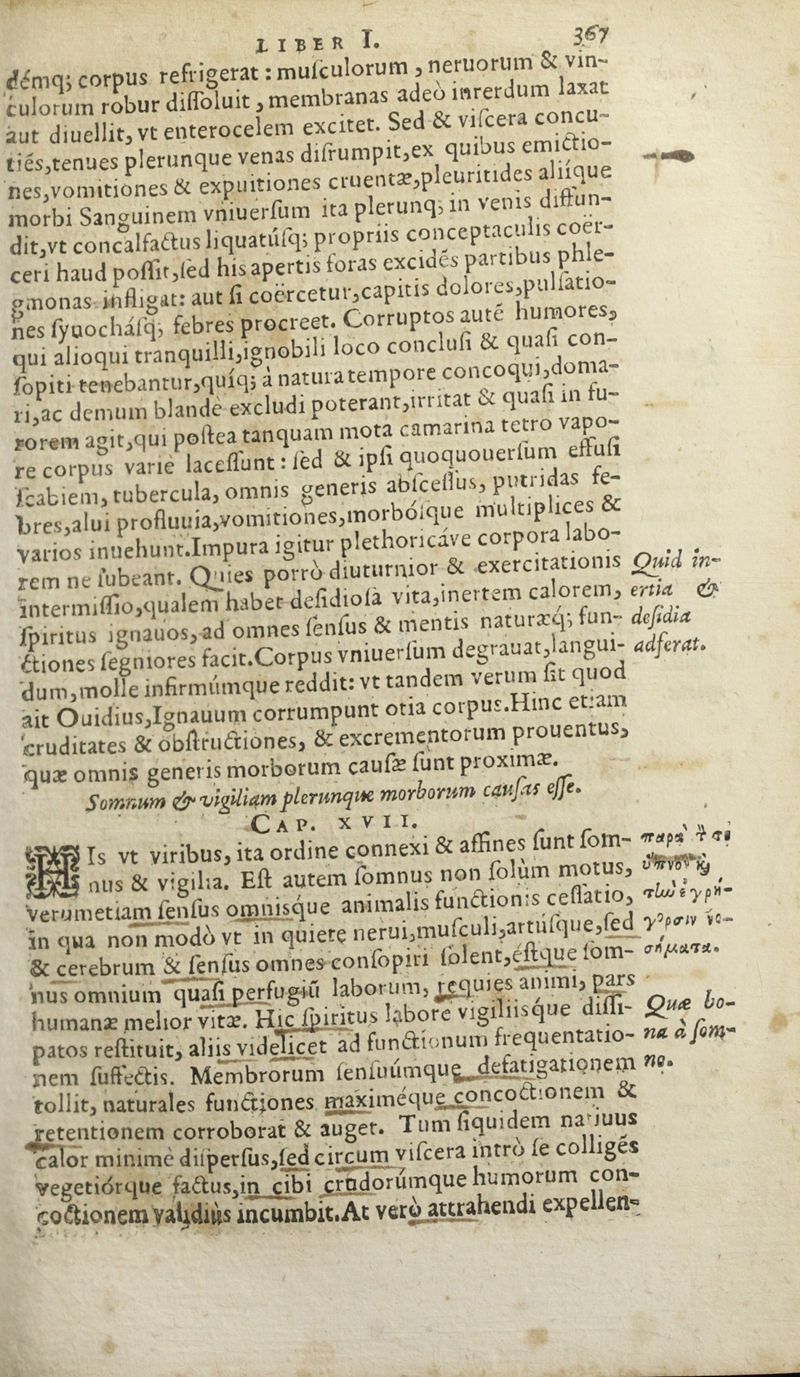 LIBER I. 367
démq; corpus refrigerat: muſculorum, neruorum & vin-
culorum robur diſſoluit, membranas adeò interdum laxat
aut diuellit, vt enterocelem excitet. Sed & viſcera concu-
tiés, tenues plerunque venas diſrumpit, ex quibus emictio-
nes, vomitiones & expuitiones cruentæ, pleuritides aliique
morbi Sanguinem vniuerſum ita plerunq; in venis diffun-
dit, vt concalfactus liquatúſq; propriis conceptaculis coer-
ceri haud poſſit, ſed his apertis foras excidés partibus phle-
gmonas infligat: aut ſi coërcetur, capitis dolores, pulſatio-
nes ſynochâſq; febres procreet. Corruptos auté humores,
qui alioqui tranquilli, ignobili loco concluſi & quaſi con-
ſopiti tenebantur, quíq; à natura tempore concoqui, doma-
ri, ac demum blandè excludi poterant, irritat & quaſi in fu-
rorem agit, qui poſtea tanquam mota camarina tetro vapo-
re corpus variè laceſſunt: ſed & ipſi quoquouerſum effuſi
ſcabiem, tubercula, omnis generis abſceſſus, putridas fe-
bres, alui profluuia, vomitiones, morboſque multiplices &
varios inuehunt. Impura igitur plethoricáve corpora labo-
rem ne ſubeant. Quies porrò diuturnior & exercitationis
Quid in-
intermiſſio, qualem habet deſidioſa vita, inertem calorem,
ertia &
ſpiritus ignauos, ad omnes ſenſus & mentis naturæq; fun-
deſidia
ctiones ſegniores facit. Corpus vniuerſum degrauat, langui-
adferat.
dum, molle infirmúmque reddit: vt tandem verum ſit quod
ait Ouidius, Ignauum corrumpunt otia corpus. Hinc etiam
cruditates & obſtructiones, & excrementorum prouentus,
quæ omnis generis morborum cauſæ ſunt proximæ.
Somnum & vigiliam plerunque morborum cauſas eſſe.
CAP. XVII.
HIs vt viribus, ita ordine connexi & affines ſunt ſom-
nus & vigilia. Eſt autem ſomnus non ſolùm motus,
verumetiam ſenſus omnisque animalis functionis ceſſatio,
in qua non modò vt in quiete nerui, muſculi, artuſque, ſed
& cerebrum & ſenſus omnes conſopiri ſolent, éſtque ſom-
nus omnium quaſi perfugiū laborum, requies animi, pars
humanæ melior vitæ. Hic ſpiritus labore vigiliisque diſſi-
Quæ bo-
patos reſtituit, aliis videlicet ad functionum frequentatio-
na à ſom-
nem ſuffectis. Membrorum ſenſuúmque defatigationem
no.
tollit, naturales functiones maximéque concoctionem &
retentionem corroborat & auget. Tum ſiquidem natiuus
calor minimè diſperſus, ſed circum viſcera intrò ſe colliges
vegetiórque factus, in cibi crudorúmque humorum con-
coctionem validiùs incumbit. At verò attrahendi expellen-